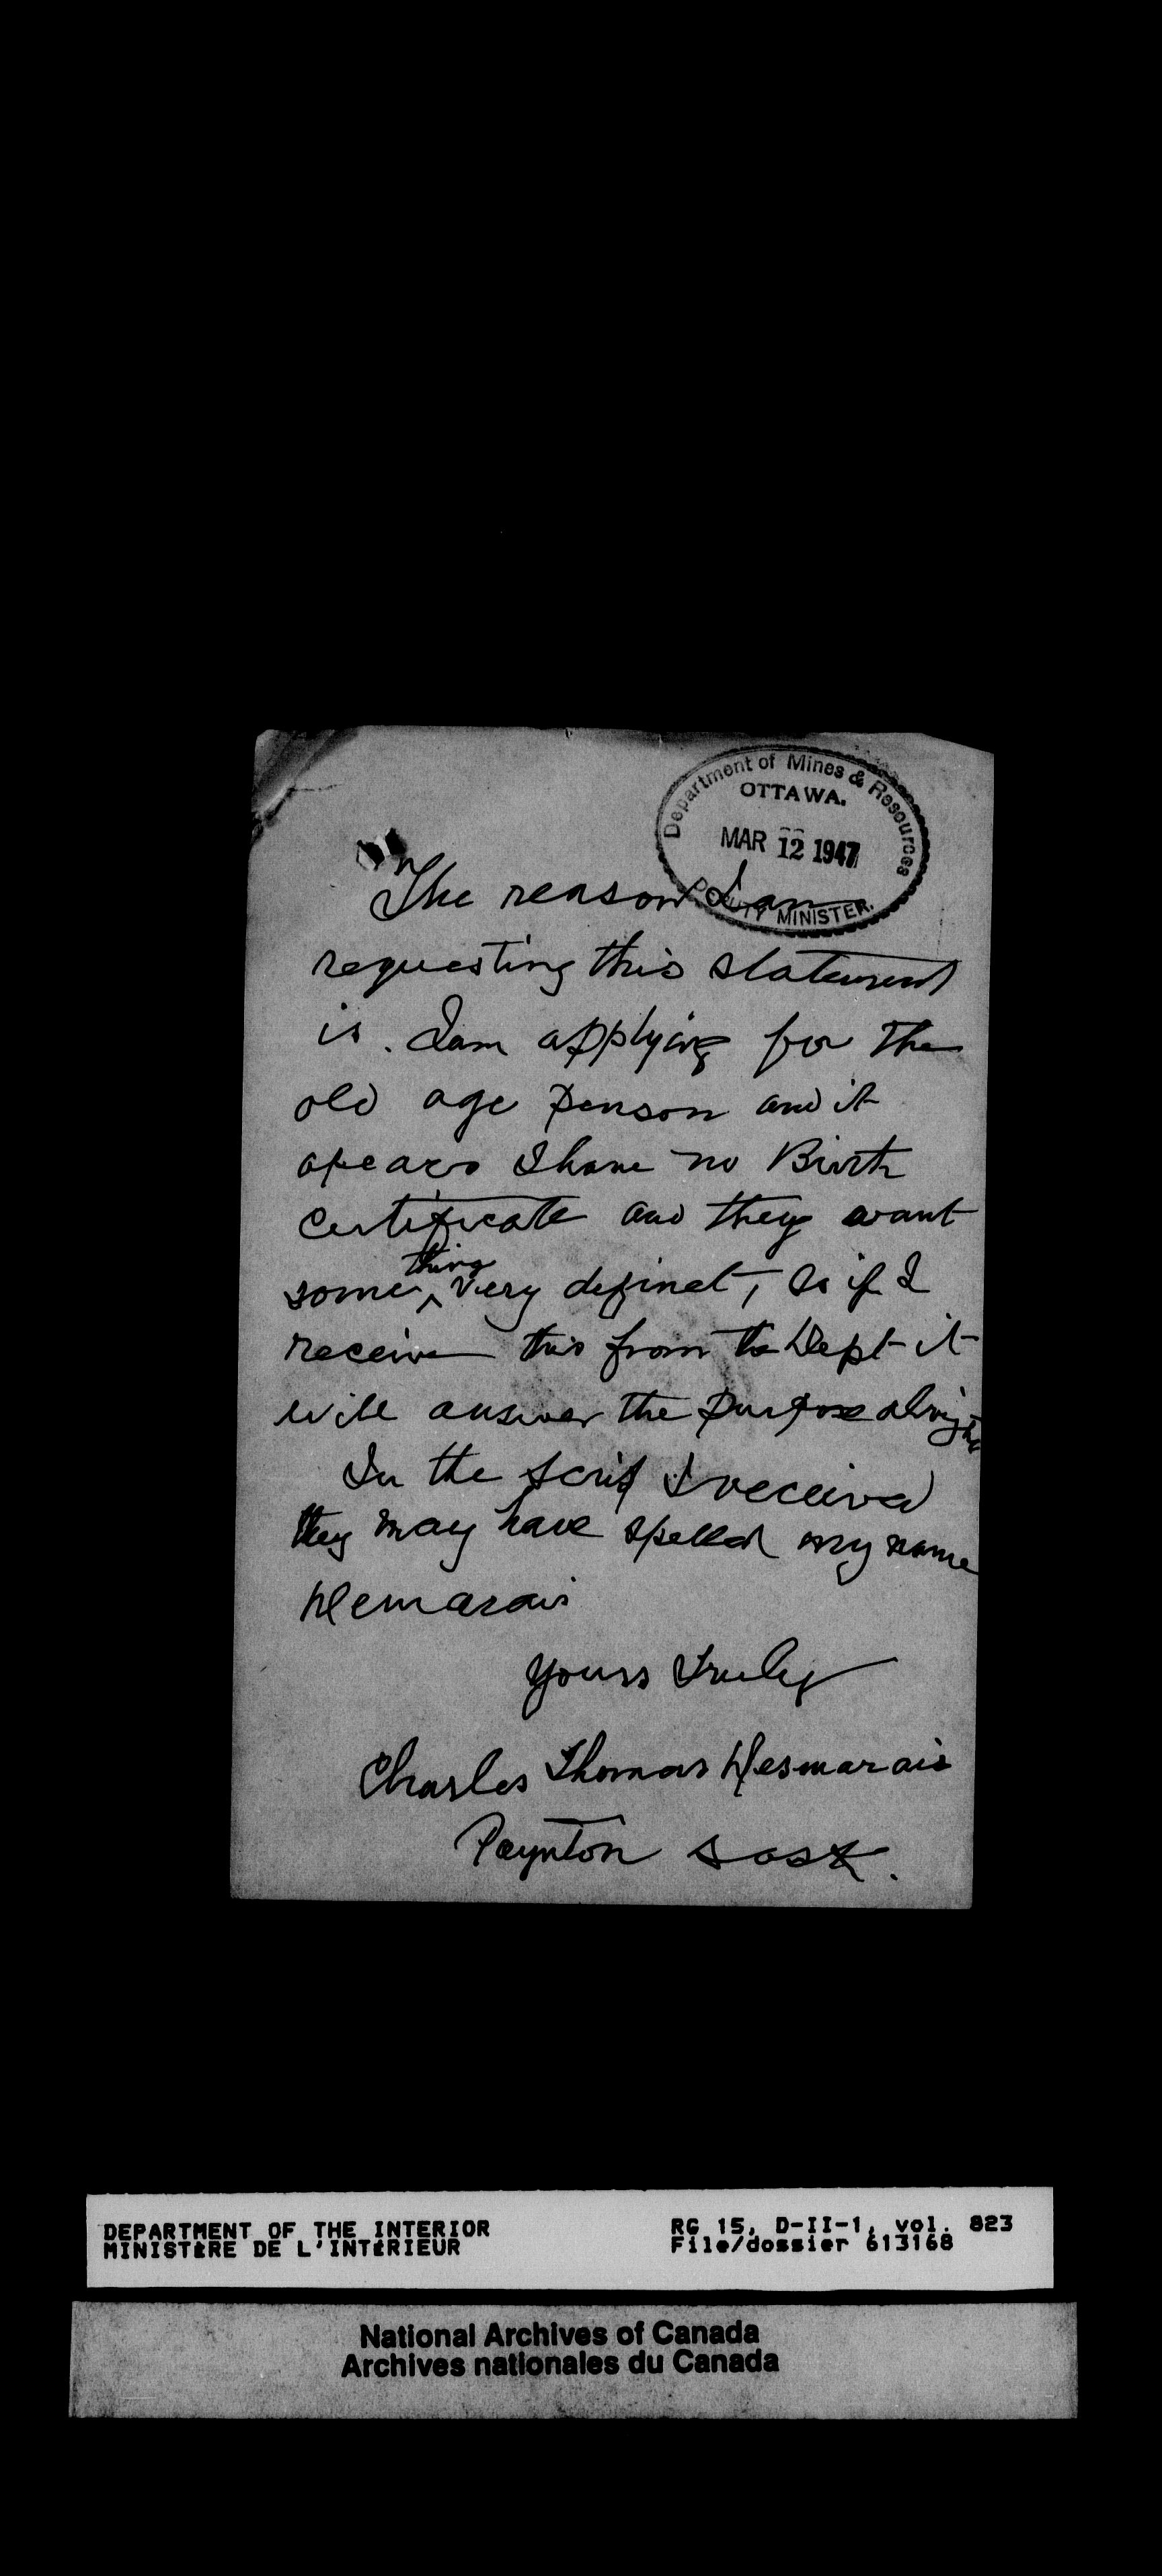 Department of Mines & Resources
OTTAWA.
MAR 12 1947
DEPUTY MINISTER.
The reason I am
requesting this statement
is. I am applying for the
old age penson and it
apears I have no Birth
Certificate and they want
some^thing very definet, so if I
receive this from the Dept it
will answer the purpose alright
In the scrip I received
they may have spelled my name
Demarais
Yours Truly
Charles Thomas Desmarais
Paynton Sask.
DEPARTMENT OF THE INTERIOR
MINISTÈRE DE L'INTÉRIEUR
RG 15, D-II-1, vol. 823
File/dossier 613168
National Archives of Canada
Archives nationales du Canada